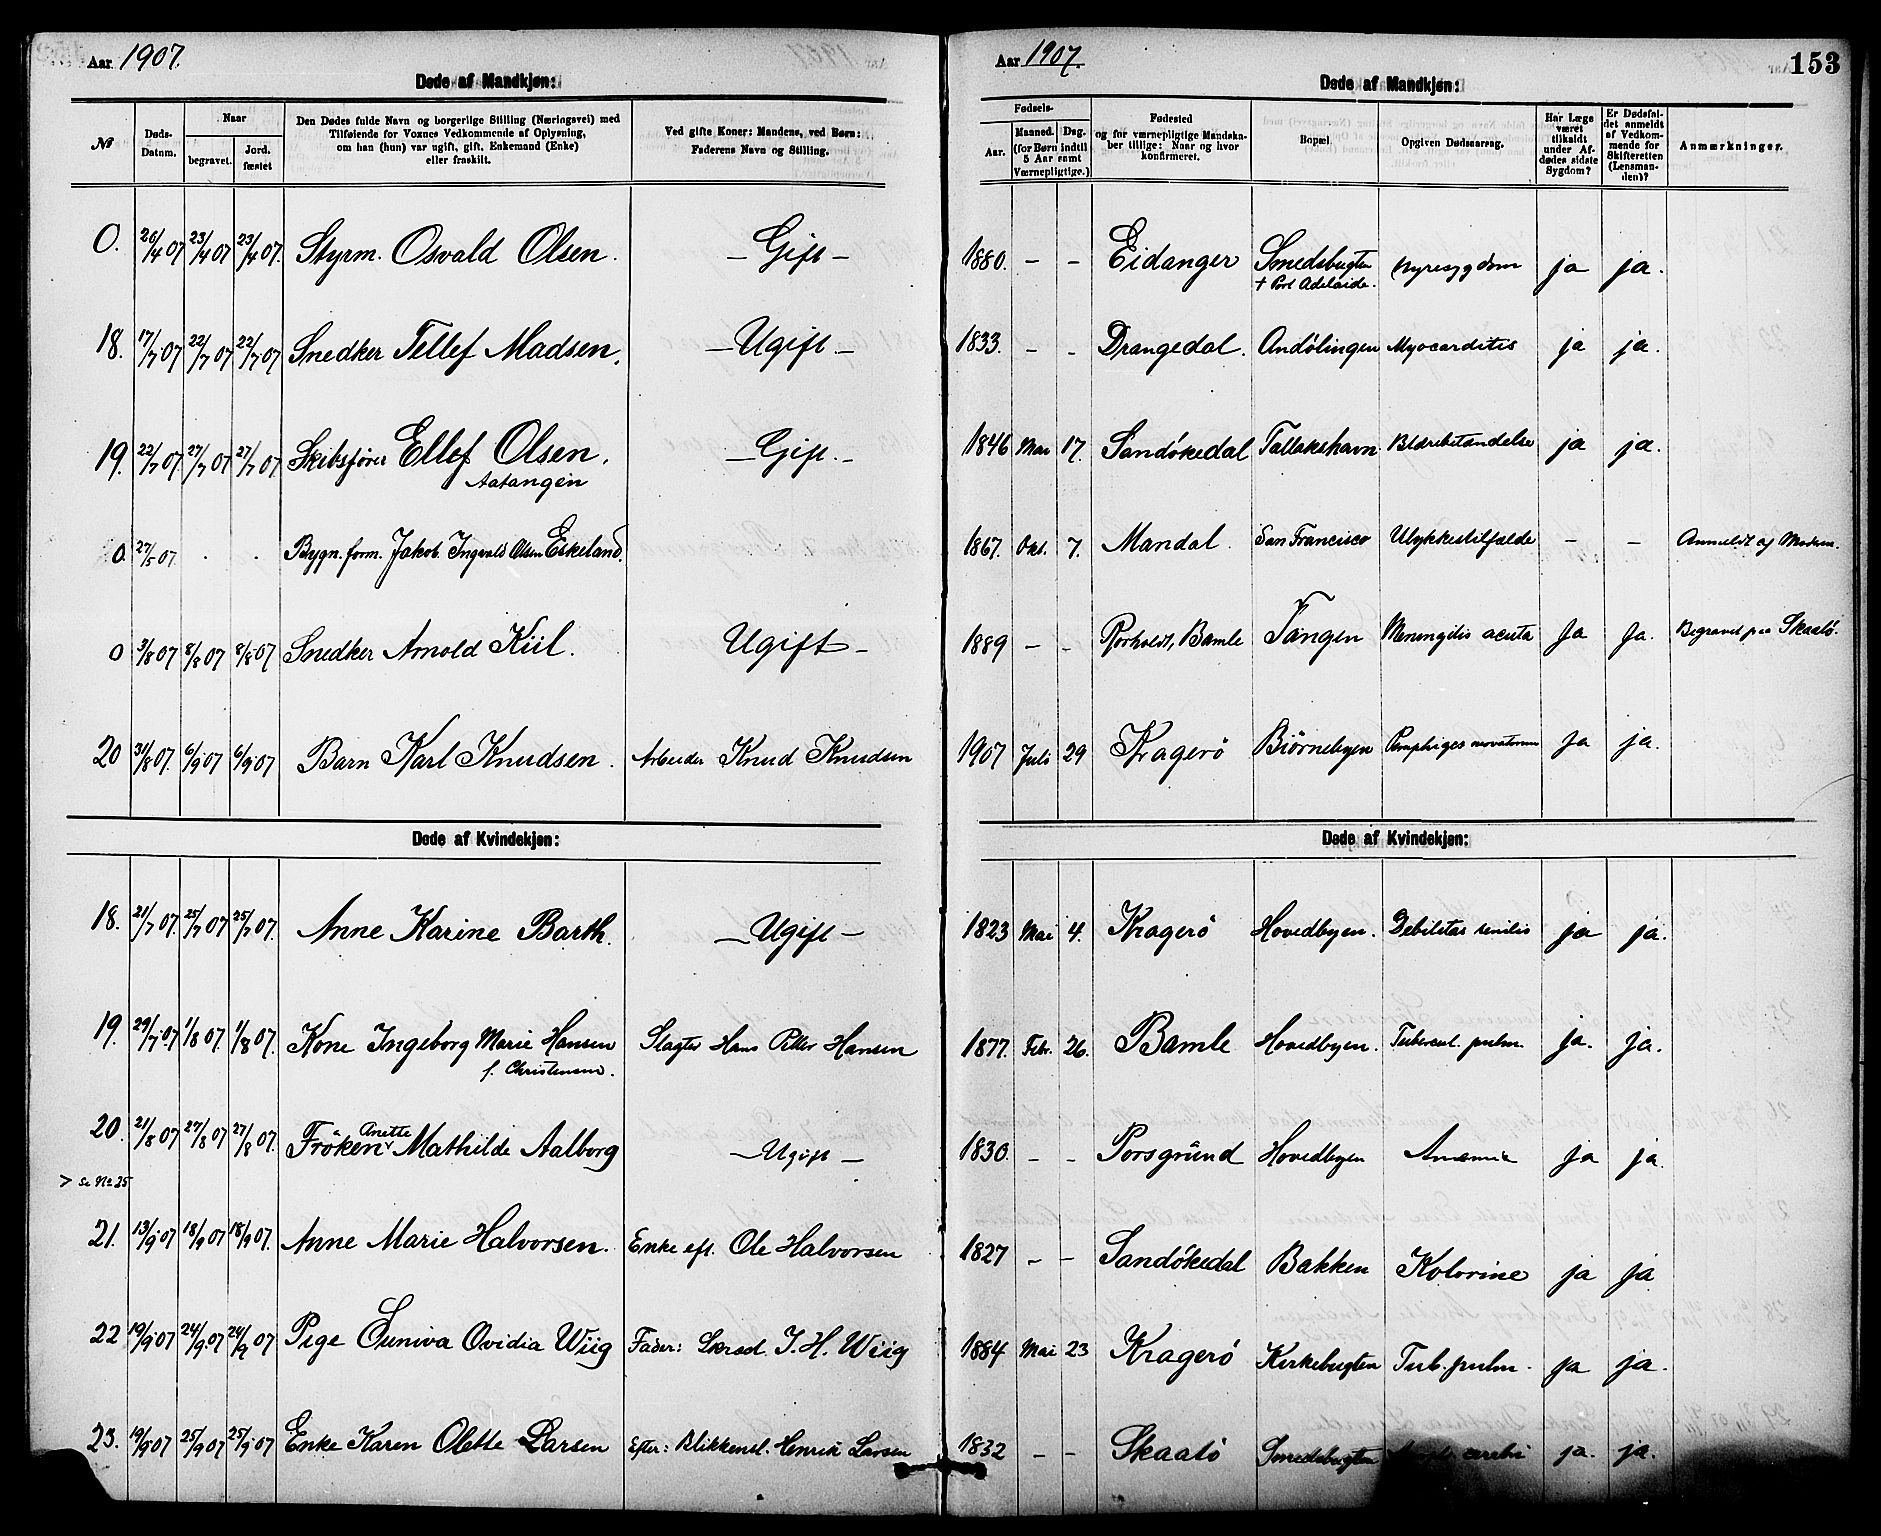 Aar 1907.
Døde af Mandkjøn:
№
Døds-Datum.
Naar
begravet.
Jord. fæstet
Den Dødes fulde Navn og borgerlige Stilling (Næringsvei) med
Tilføiende for Voxnes Vedkommende af Oplysning,
om han (hun) var ugift, gift, Enkemand (Enke)
eller fraskilt.
Ved gifte Koner: Mandens, ved Børn:
Faderens Navn og Stilling.
0. 20/4 07 23/4 07 23/4 07. Styrm. Osvald Olsen. – Gift –
18. 17/7 07 22/7 07 22/7 07 Snedker Tellef Madsen. – Ugift –
19. 22/7 07 27/7 07 27/7 07 Skibsfører Ellef Olsen. – Gift. –
Aatangen
0 27/5 07 . . Bygn. form. Jakob Ingvald Olsen Eskeland.
0 3/8 07 8/8 07 8/8 07 Snedker Arnold Kiil. Ugift –
20 31/8 07. 6/9 07 6/9 07 Barn Karl Knudsen. Arbeider Knud Knudsen
Døde af Kvindekjøn:
18. 21/7 07. 25/7 07 25/7 07. Anne Karine Barth. – Ugift –
19. 29/7 07 1/8 07. 1/8 07. Kone Ingeborg Marie Hansen Slagter Hans Petter Hansen
f. Christensen.
Anette
20. 21/8 07 27/8 07 27/8 07. Frøken Mathilde Aalborg – Ugift –
> se № 25
21. 13/9 07 18/9 07 18/9 07. Anne Marie Halvorsen. Enke eft. Ole Halvorsen
22 19/9 07 24/9 07 24/9 07 Pige Suniva Ovidia Wiig Fader: Skræd. J. H. Wiig
23. 19/9 07 25/9 07 25/9 07 Enke Karen Olette Larsen Efter: Blikkensl. Henrik Larsen
Aar 1907.
153
Døde af Mandkjøn:
Fødsels-
Aar.
Maaned. Dag.
(for Børn indtil
5 Aar samt
Værnepligtige.)
Fødested
og for værnepligtige Mandska-
ber tillige: Naar og hvor
konfirmeret.
Bopæl.
Opgiven Dødsaarsag.
Har Læge
været
tilkaldt
under Af-
dødes sidste
Sygdom?
Er Dødsfal-
det anmeldt
af Vedkom-
mende for
Skifteretten
(Lensman-
den)?
Anmærkninger.
1880. – – Eidanger Smedsbugten Nyresygdom ja ja.
+ Port Adelaide.
1833. – – Drangedal. Andølingen Myocarditis ja ja.
1846 Mai 17. Sandøkedal Tallakshavn Blærebetændelse ja ja.
1867. Okt. 7. Mandal. San Francisco Ulykkestilfælde – – Anmeldt af Moderen.
1889 – – Rorholdt, Bamle Tangen Meningitis acuta Ja Ja. Begravet paa Skaatø.
1907 Juli 29 Kragerø Biørnebyen Pemphigus neonatorum Ja ja.
Døde af Kvindekjøn:
1823 Mai 4. Kragerø Hovedbyen. Debilitas senilis ja ja.
1877. Febr. 26. Bamle Hovedbyen. Tubercul. pulm. ja. ja.
1830. – – Porsgrund Hovedbyen Anæmia ja ja.
1827 – – Sandøkedal Bakken Kolorine ja ja
1884 Mai 23 Kragerø Kirkebugten Tub. pulm. ja ja.
1832 – – Skaatø Smedsbugten cerebri ja. ja.